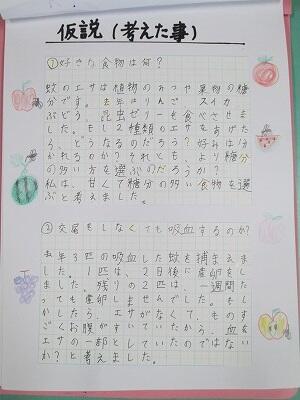 仮説(考えた事)
①好きな食物は何?
蚊のエサは植物のみつや果物の糖
分です。去年はりんご スイカ
ぶどう、昆虫ゼリーを食べさせま
した。もし2種類のエサをあげた
ら、どうなるのだろう?好みは分
かれるのか?それとも、より糖分
の多い方を選ぶのだろうか?
私は、甘くて糖分の多い食物を選
ぶと考えました。
②交尾をしなくても吸血するのか?
去年3匹の吸血した蚊を捕まえま
した。1匹は、2日後に産卵をし
ました。残りの2匹は、一週間た
っても産卵しませんでした。もし
かしたら、エサがなくて、ものす
ごくお腹がすいていたから、血を
エサの一部としていたのではない
か?と考えました。